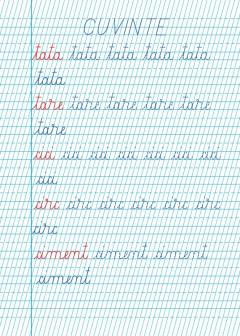 CUVINTE
tata tata tata tata tata
tata
tare tare tare tare tare
tare
aa aa aa aa aa aa aa
aa
arc arc arc arc arc arc
arc
ament ament ament
ament